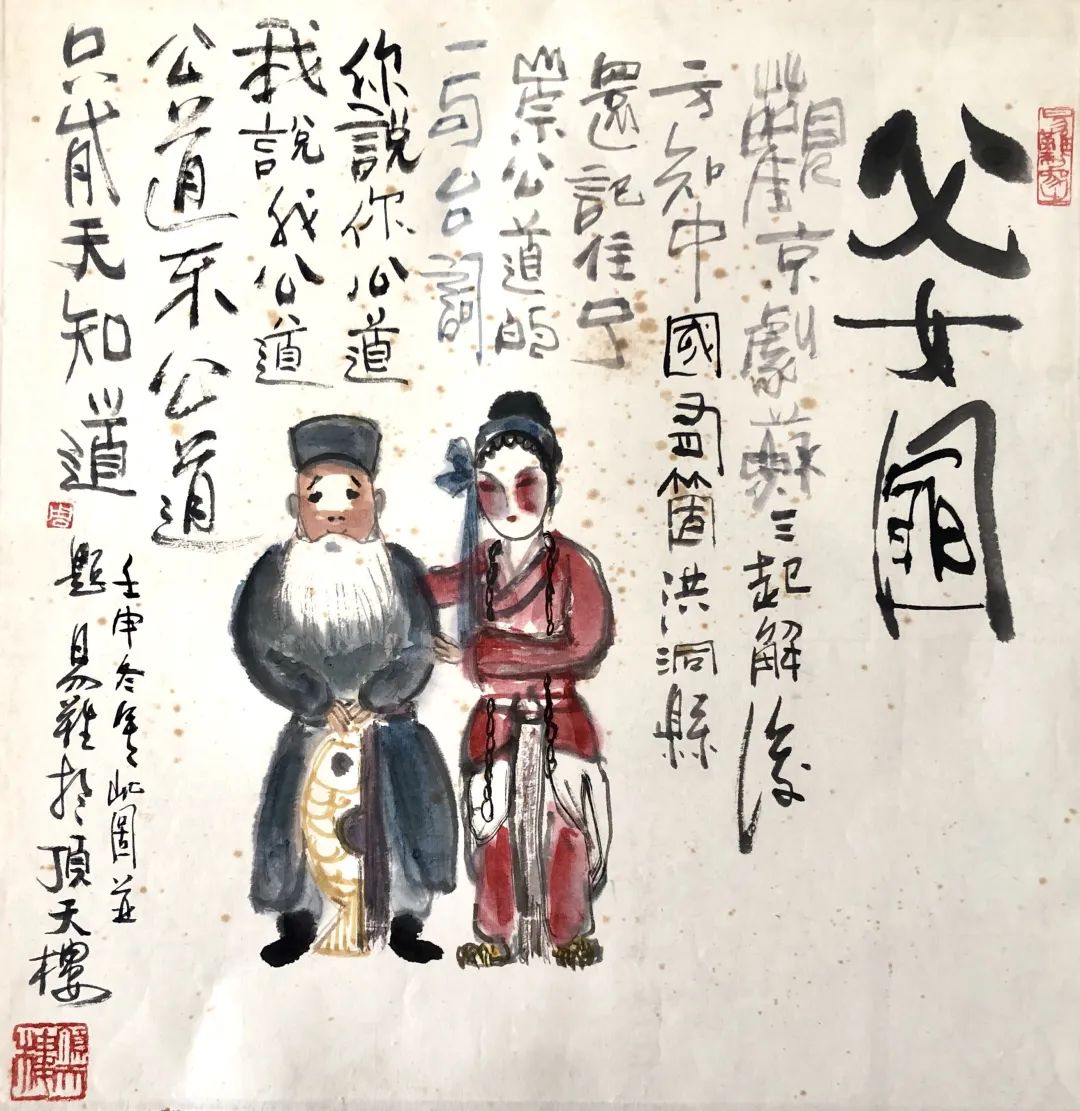 父女圖
觀京劇蘇三起解後
方知中國有箇洪洞縣
還記住了
崇公道的
一句台詞
你說你公道
我說我公道
公道不公道
只有天知道
壬申冬寫此圖並
題易難於頂天樓